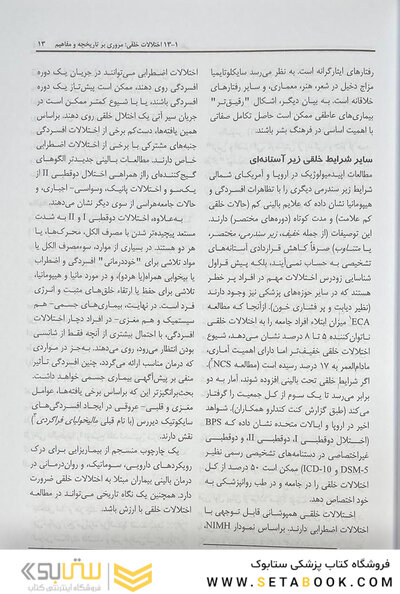 ۱۳-۱ اختلالات خلقی: مروری بر تاریخچه و مفاهیم ۱۳
رفتارهای ایثارگرانه است. به نظر می‌رسد سایکلوتایمیا
مزاج دخیل در شعر، هنر، معماری، و سایر رفتارهای
خلاقانه است. به بیان دیگر، اشکال "رقیق‌تر"
بیماری‌های عاطفی ممکن است حاصل تکامل صفاتی
با اهمیت اساسی در فرهنگ بشر باشند.
سایر شرایط خلقی زیر آستانه‌ای
مطالعات اپیدمیولوژیک در اروپا و آمریکای شمالی
شرایط زیر سندرمی دیگری را با تظاهرات افسردگی و
هیپومانیا نشان داده که علایم بالینی کم (حالات خلقی
کم علامت) و مدت کوتاه (دوره‌های مختصر) دارند.
این توصیفات (از جمله خفیف، زیر سندرمی، مختصر،
یا متناوب) صرفاً کاهش قراردادی آستانه‌های
تشخیصی به حساب نمی‌آیند، بلکه پیش قراول
شناسایی زودرس اختلالات مهم در افراد پر خطر
هستند که در سایر حوزه‌های پزشکی نیز وجود دارند
(نظیر دیابت و پر فشاری خون). ازآنجا که مطالعه
ECA میزان ابتلاء افراد جامعه را به اختلالات خلقی
ناتوان‌کننده ۵ تا ۸ درصد نشان می‌دهد، شیوع
اختلالات خلقی خفیف‌تر اما دارای اهمیت آماری،
مادام‌العمر به ۱۷ درصد رسیده است (مطالعه NCS).
اگر شرایط خلقی تحت بالینی افزوده شوند، آمار به دو
برابر می‌رسد تا یک سوم از کل جمعیت را گرفتار
می‌کند (طبق گزارش کنت کندلرو همکاران). شواهد
اخیر در اروپا و ایالات متحده نشان داده که BPS
(اختلال دوقطبی I، دوقطبی II، و دوقطبی
غیراختصاصی در دستنامه‌های تشخیصی رسمی نظیر
DSM-5 و ICD-10) ممکن است ۵۰ درصد از کل
اختلالات خلقی را در جامعه و در طب روانپزشکی به
خود اختصاص دهد.
اختلالات خلقی همپوشانی قابل توجهی با
اختلالات اضطرابی دارند. براساس نمودار NIMH،
اختلالات اضطرابی می‌توانند در جریان یک دوره
افسردگی روی دهند، ممکن است پیش‌تاز یک دوره
افسردگی باشند، یا با شیوع کمتر ممکن است در
جریان سیر آتی یک اختلال خلقی روی دهند. براساس
همین یافته‌ها، دست‌کم برخی از اختلالات افسردگی
جنبه‌های مشترکی با برخی از اختلالات اضطرابی
خاص دارند. مطالعات بالینی جدیدتر الگوهای
گیج‌کننده‌ای راااز همراهی اختلال دوقطبی II از
یک‌سو و اختلالات پانیک، وسواسی- اجباری، و
حالات جامعه‌هراسی از سوی دیگر نشان می‌دهند.
به‌علاوه، اختلالات دوقطبی I و II به شدت
مستعد پیچیده‌تر شدن با مصرف الکل، محرک‌ها، یا
هر دو هستند. در بسیاری از موارد، سوءمصرف الکل یا
مواد تلاشی برای "خوددرمانی" افسردگی و اضطراب
یا بیخوابی همراه(یا هردو)، و در مورد مانیا و هیپومانیا،
تلاشی برای حفظ یا ارتقاء خلق‌های مثبت و انرژی
فرد است. در نهایت، بیماری‌های جسمی- هم
سیستمیک و هم مغزی- در افراد دچار اختلالات
افسردگی، با احتمال بیشتری از آنچه فقط از شانسی
بودن انتظار می‌رود، روی می‌دهند. به‌جز در مواردی
که درمان مناسب ارائه می‌گردد، چنین افسردگی تأثیر
منفی بر پیش‌آگهی بیماری جسمی خواهد داشت.
بحث‌برانگیزتر این که براساس برخی یافته‌ها، عوامل
مغزی و قلبی- عروقی در ایجاد افسردگی‌های
سایکوتیک دیررس (با نام قبلی مالیخولیای فراگردی)
نقش دارند.
یک چارچوب منسجم از بیماریزایی برای درک
رویکردهای دارویی، سوماتیک، و روان‌درمانی در
درمان بالینی بیماران مبتلا به اختلالات خلقی ضرورت
دارد. همچنین یک نگاه تاریخی می‌تواند در مطالعه
اختلالات خلقی با ارزش باشد.
ستابوک
فروشگاه اینترنتی کتاب
فروشگاه کتاب پزشکی ستابوک
WWW.SETABOOK.COM